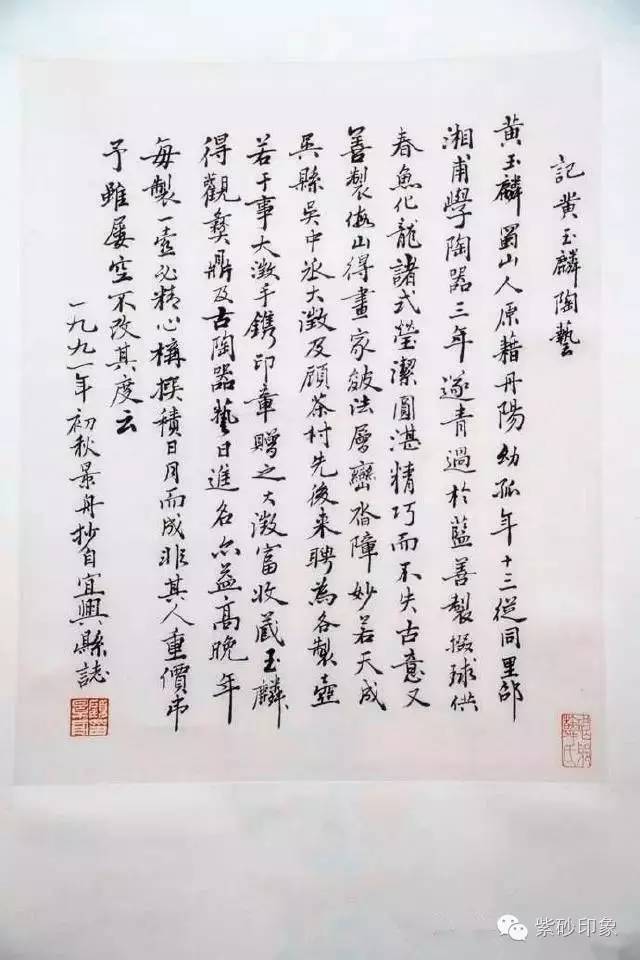 記黄玉麟陶藝
黄玉麟蜀山人原藉丹陽幼孤年十三從同里邵
湘甫學陶器三年遂青過於藍善製掇球供
春魚化龍諸式瑩潔圓湛精巧而不失古意又
善製假山得畫家皴法層巒沓障妙若天成
吳縣吳中丞大澂及顧茶村先後来聘為各製壺
若干事大澂手鐫印章贈之大澂富收藏玉麟
得觀彝鼎及古陶器藝日進名亦益高晚年
每製一壺必精心構撰積日月而成非其人重價弗
予雖屢空不改其度云
一九九一年初秋景舟抄自宜興縣誌
紫砂印象